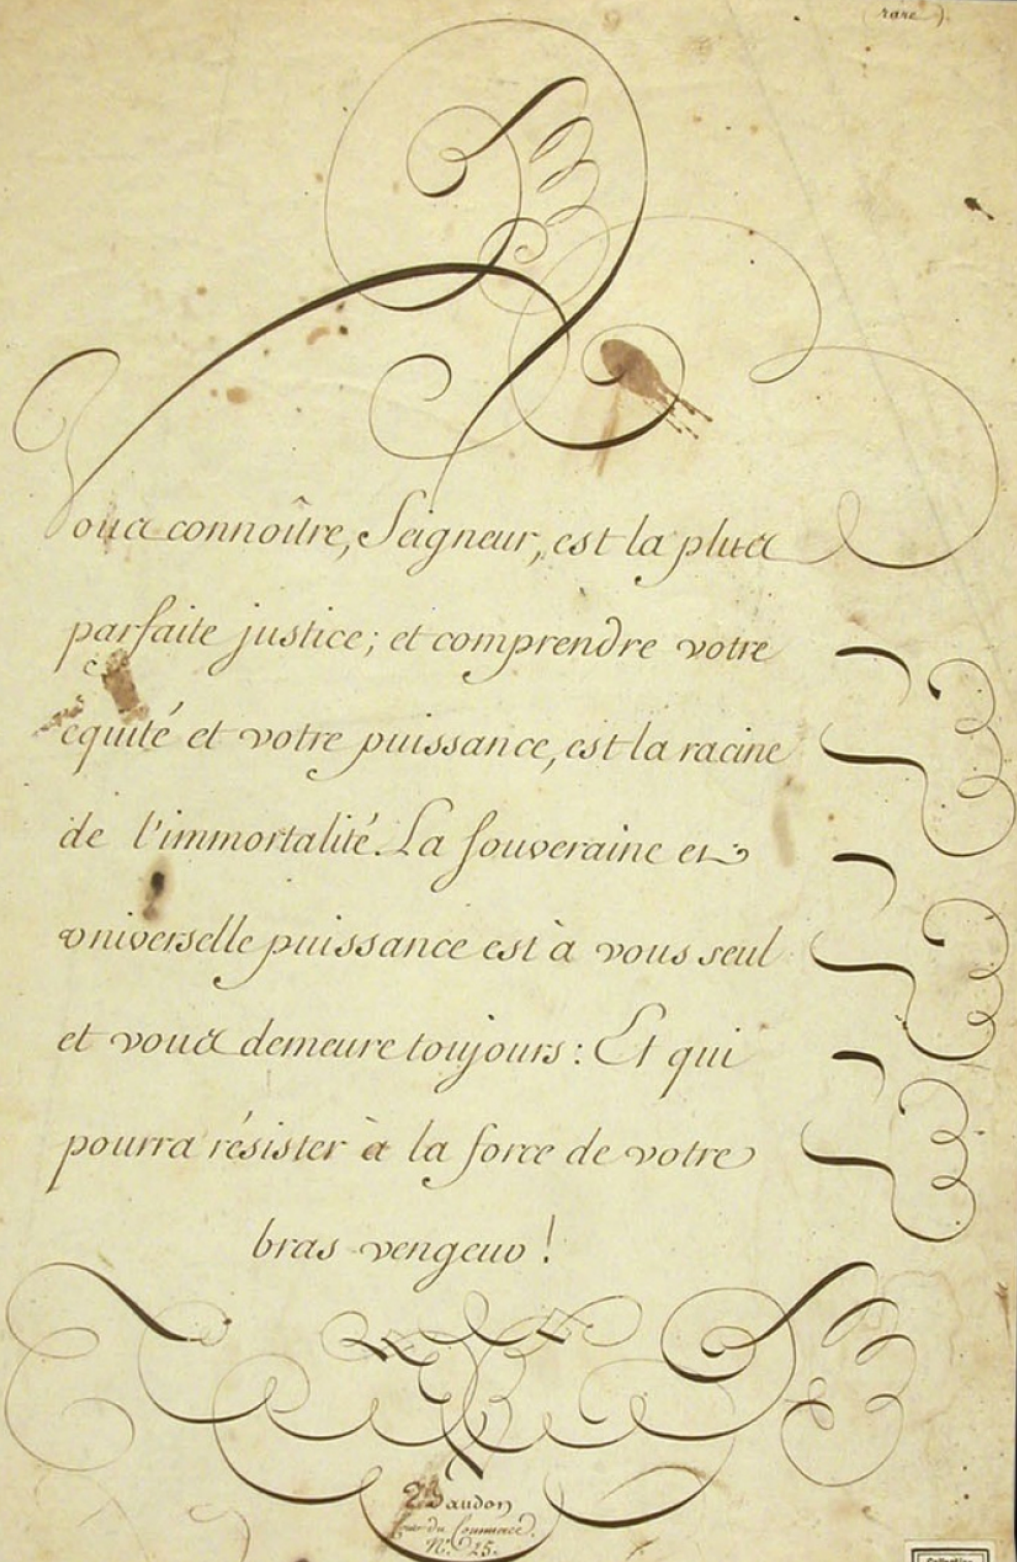 (rare)
Vous connoître, Seigneur, est la plus
parfaite justice; et comprendre votre
équité et votre puissance, est la racine
de l'immortalité. La souveraine et
universelle puissance est à vous seul
et vous demeure toujours: Et qui
pourra résister à la force de votre
bras vengeur!
Baudon
du Commerce.
N.º 25.
Collection